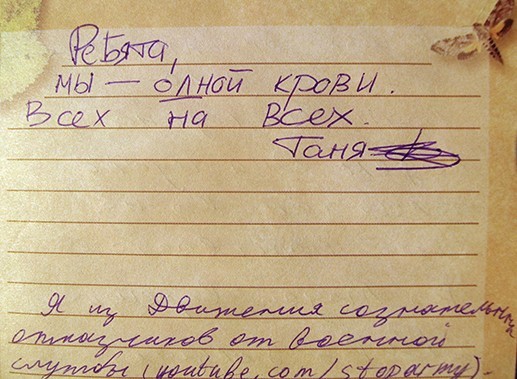 Ребята,
мы — одной крови.
Всех на всех.
Таня
Я из Движения сознательных
отказчиков от военной
службы (youtube.com/stoparmy).